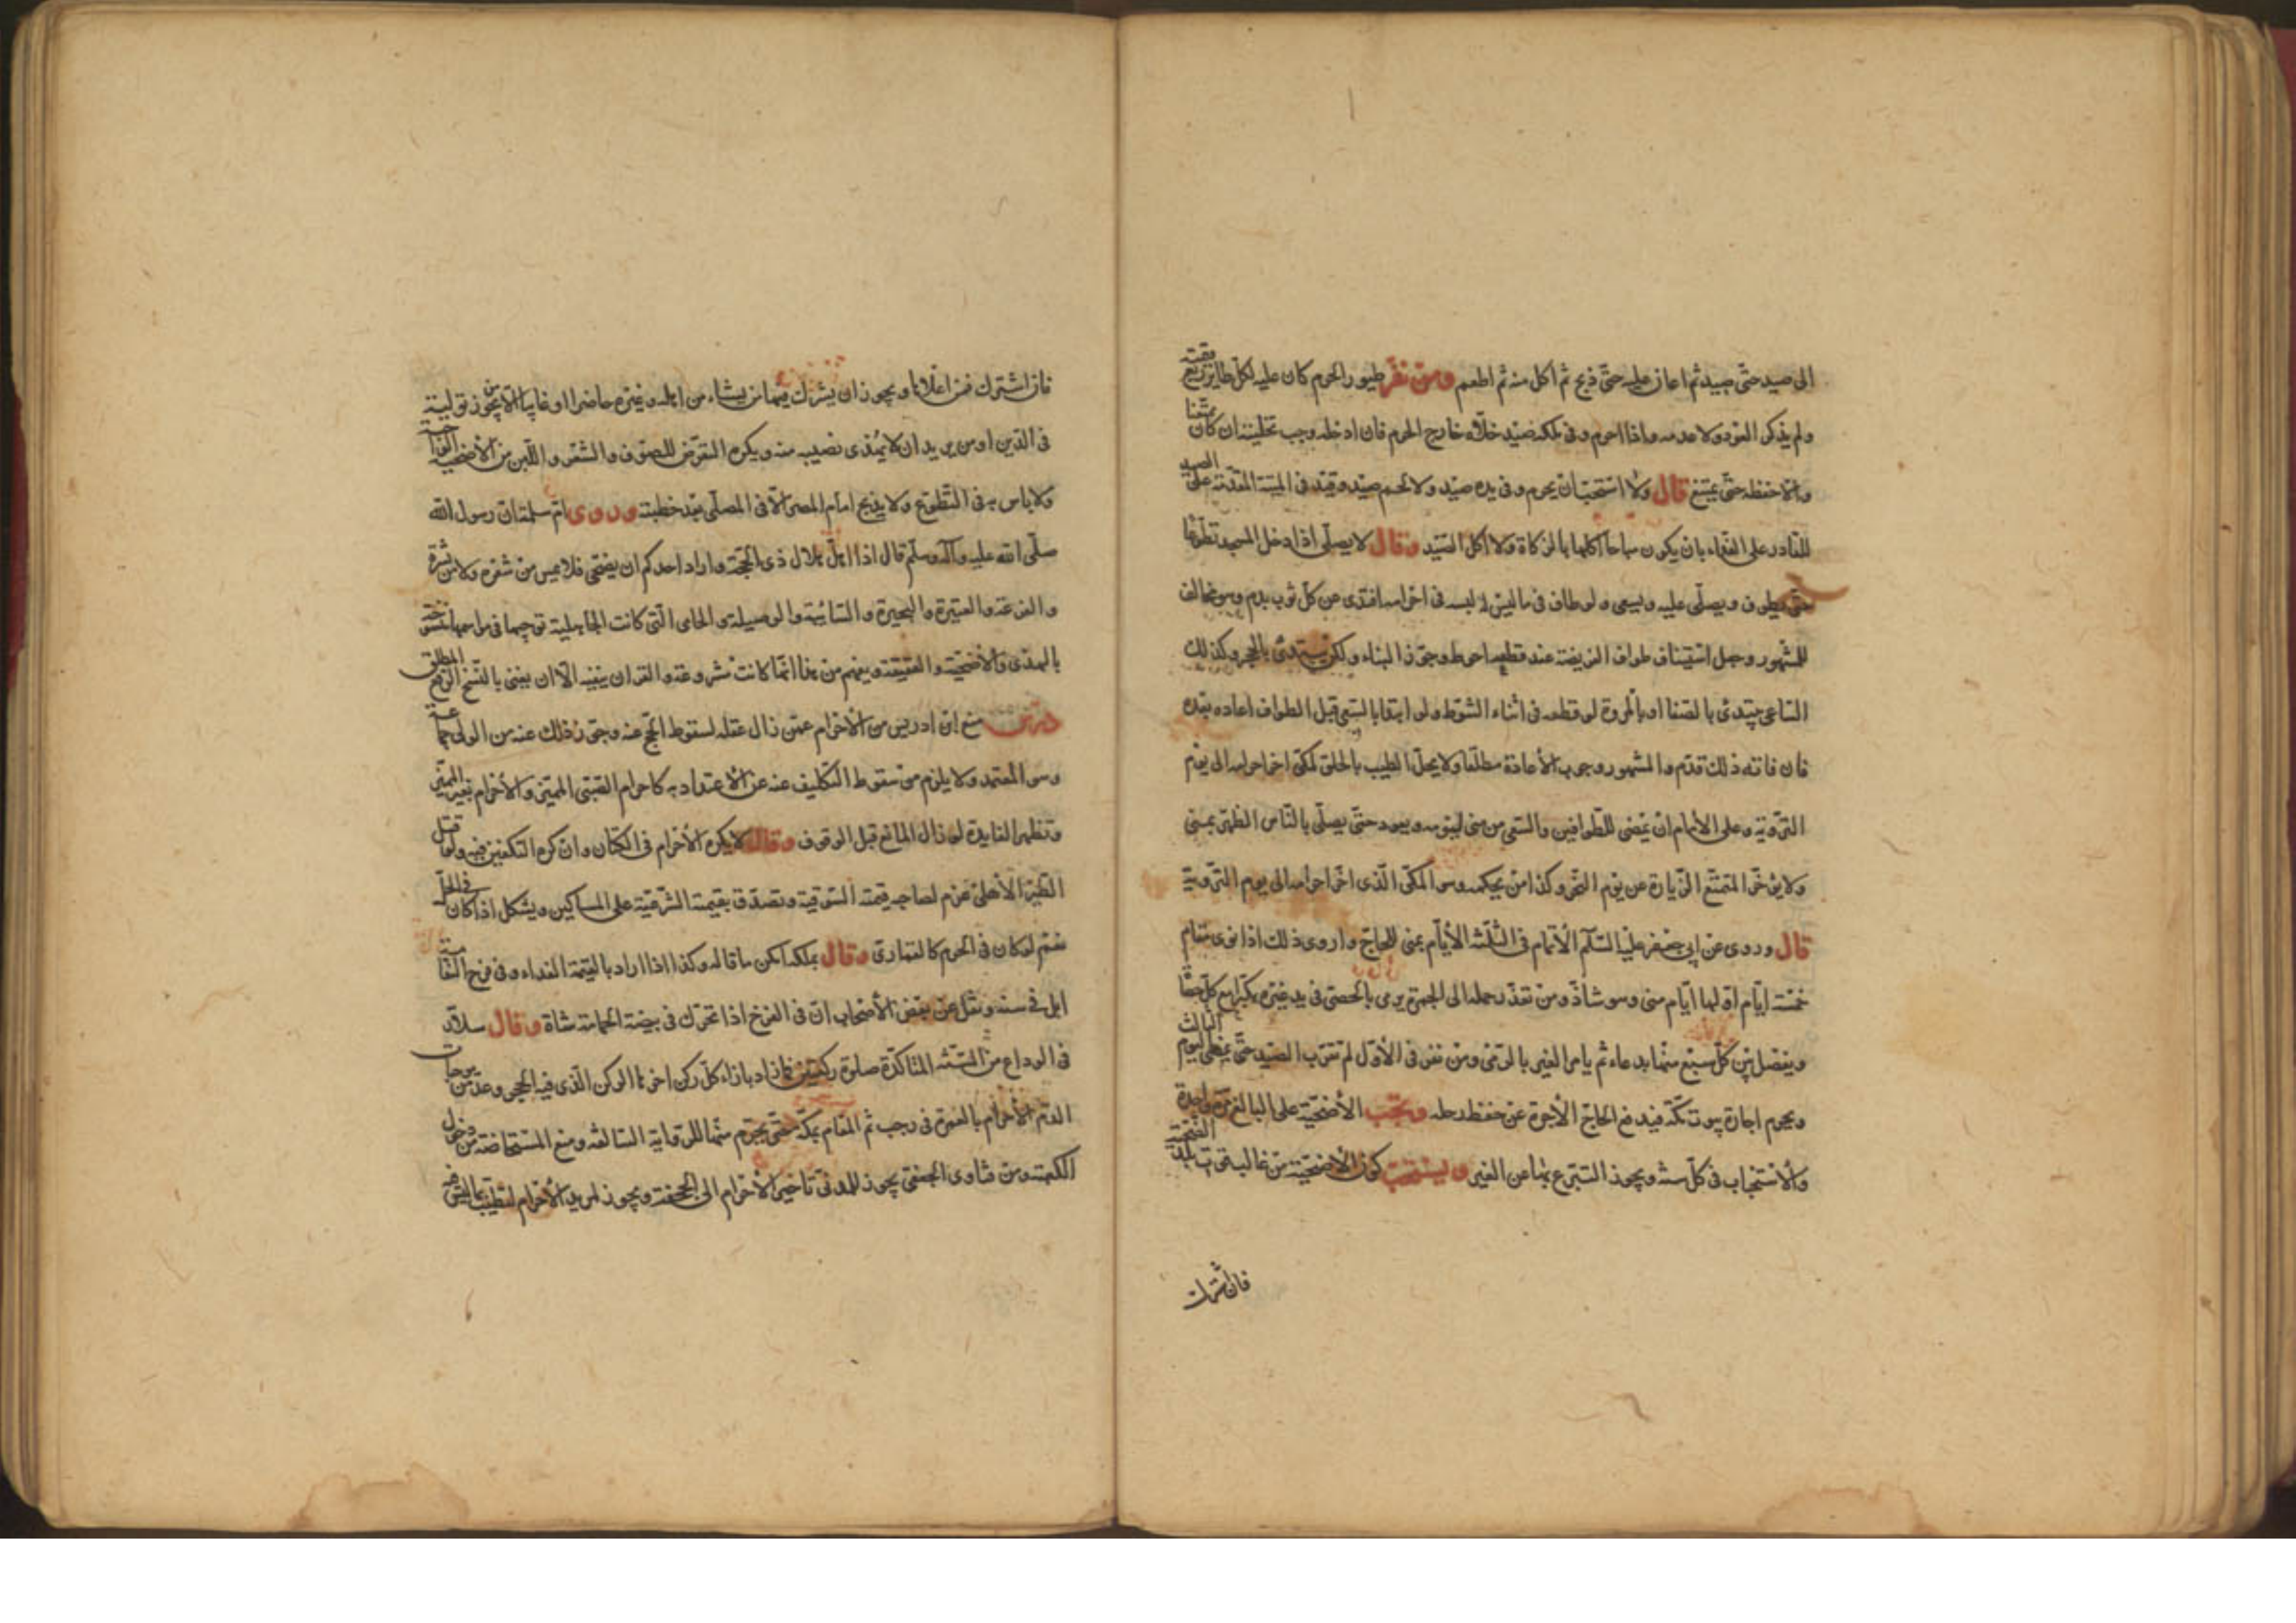 الى صيد حتى صيد ثم اعان عليه حتى ذبح ثم اكل منه ثم اطعم ومن نفر طيور الحرم كان عليه لكل طاير ربع قيمته
ولم يذكر العود ولا عدمه واذا احرم وفى ملكه صيد خلاه خارج الحرم فان ادخله وجب تخليته ان كان ممتنعا
والا حفظه حتى يمتنع قال ولا استحب ان يحرم وفى يده صيد ولا لحم صيد وقيد فى الميتة المقدمة على الصيد
للقادر على الفداء بان يكون مباحا اكلها بالزكاة ولا اكل الصيد وقال لا يصلى اذا دخل المسجد تطوعا
حتى يطوف ويصلى عليه ويسعى ولو طاف فى ما ليس له لبسه فى احرامه افتدى عن كل ثوب بدم وهو مخالف
للمشهور وجعل استيناف طواف الفريضة عند قطعه احوط وجوز البناء ولكن يبتدئ بالحجر وكذلك
الساعى يبتدئ بالصفا او بالمروة لو قطعه فى اثناء الشوط ولو ابتدا بالسعى قبل الطواف اعاده بعده
فان فاته ذلك قدم والمشهور وجوب الاعادة مطلقا ولا يحل الطيب بالحلق لمكى اخر احرامه الى يوم
التروية وعلى الامام ان يمضى للطوافين والسعى من منى ليومه ويعود حتى يصلى بالناس الظهر بمنى
ولا يؤخر المتمتع الزيارة عن يوم النحر وكذا من بحكمه وهو المكى الذى اخر احرامه الى يوم التروية
قال وروى عن ابى جعفر عليه السلام الاتمام فى الثلثة الايام بمنى للحاج وارى ذلك اذا نوى مقام
خمسة ايام اولها ايام منى وهو شاذ ومن تعذر حمله الى الجمرة يرمى بالحصى فى يد غيره يكبر مع كل حصاة
ويفصل بين كل سبع منها بدعاء ثم يامر الغير بالرمى ومن نفر فى الاول لم يقرب الصيد حتى يمضى اليوم الثالث
ويحرم اجارة بيوت مكة فيدفع الحاج الاجرة عن حفظ رحله وتجب الاضحية على البالغ مرة واحدة
والاستحباب فى كل سنة ويجوز التبرع بها عن الغير ويستحب كون الاضحية من غالب قوت بلد الضحية
فان اشترك
فان اشترك فمن اغلاها ويجوز ان يشرك فيها من يشاء من اهله وغيره حاضرا او غايبا الا من يجوز توليته
فى الدين او من يريد ان لا يُهدى نصيبه منه ويكره التعرض للصوف والشعر واللبن من الاضحية الواجبة
ولا باس به فى التطوع ولا يذبح امام المصر الا فى المصلى بعد خطبته وروى ام سلمة ان رسول الله
صلى الله عليه وآله وسلم قال اذا اهل هلال ذى الحجة واراد احدكم ان يضحى فلا يمس من شعره ولا من بشره
والفرعة والعتيرة والبحيرة والسائبة والوصيلة والحامى التى كانت الجاهلية توجبها فى مواجبها منسوخة
بالهدى والاضحية والعقيقة ويفهم من هذا انما كانت مشروعة والقران ينفيه الا ان يعنى بالنسخ الرفع المطلق
منع ابن ادريس من الاحرام عمن زال عقله لسقوط الحج عنه وجوز ذلك عنه من الولى جماعة
وهو المعتمد ولا يلزم من سقوط التكليف عنه عن الاعتداد به كاحرام الصبى المميز والاحرام بغير المميز
وتظهر الفايدة لو زال المانع قبل الوقوف وقال لا يكره الاحرام فى الكتان وان كره التكفين فيه ولو قتل
الطير الاهلى غرم لصاحبه قيمته السوقية وتصدق بقيمته الشرعية على المساكين ويشكل اذا كان فى الحل
نعم لو كان فى الحرم كالقمارى وقال بملكه امكن ما قاله وكذا اذا اراد بالقيمة الفداء وفى فرخ النعامة
ابل فى سنه ونقل عن بعض الاصحاب ان فى الفرخ اذا تحرك فى بيضة الحمامة شاة وقال سلار
فى الوداع من السنة المتاكدة صلوة ركعتين فما زاد بازاء كل ركن اخرها الركن الذى فيه الحجر وعد من موجبات
الدم الاحرام بالعمرة فى رجب ثم المقام بمكة حتى يحرم منها للرواية السالفة ومنع المستحاضة من دخول
الكعبة ومن فتاوى الجعفى يجوز للمدنى تاخير الاحرام الى الجحفة ويجوز لمريد الاحرام التطيب بما ليس فيه